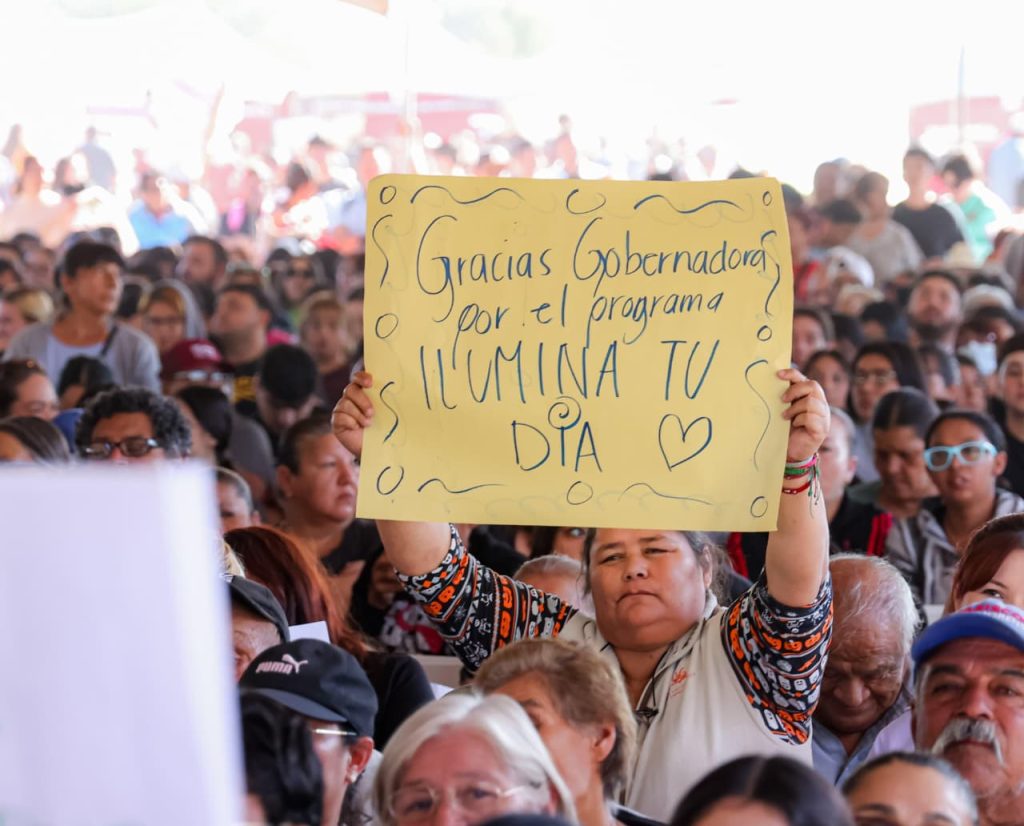 Gracias Gobernadora
por el programa
ILUMINA TU
DIA
PUMA